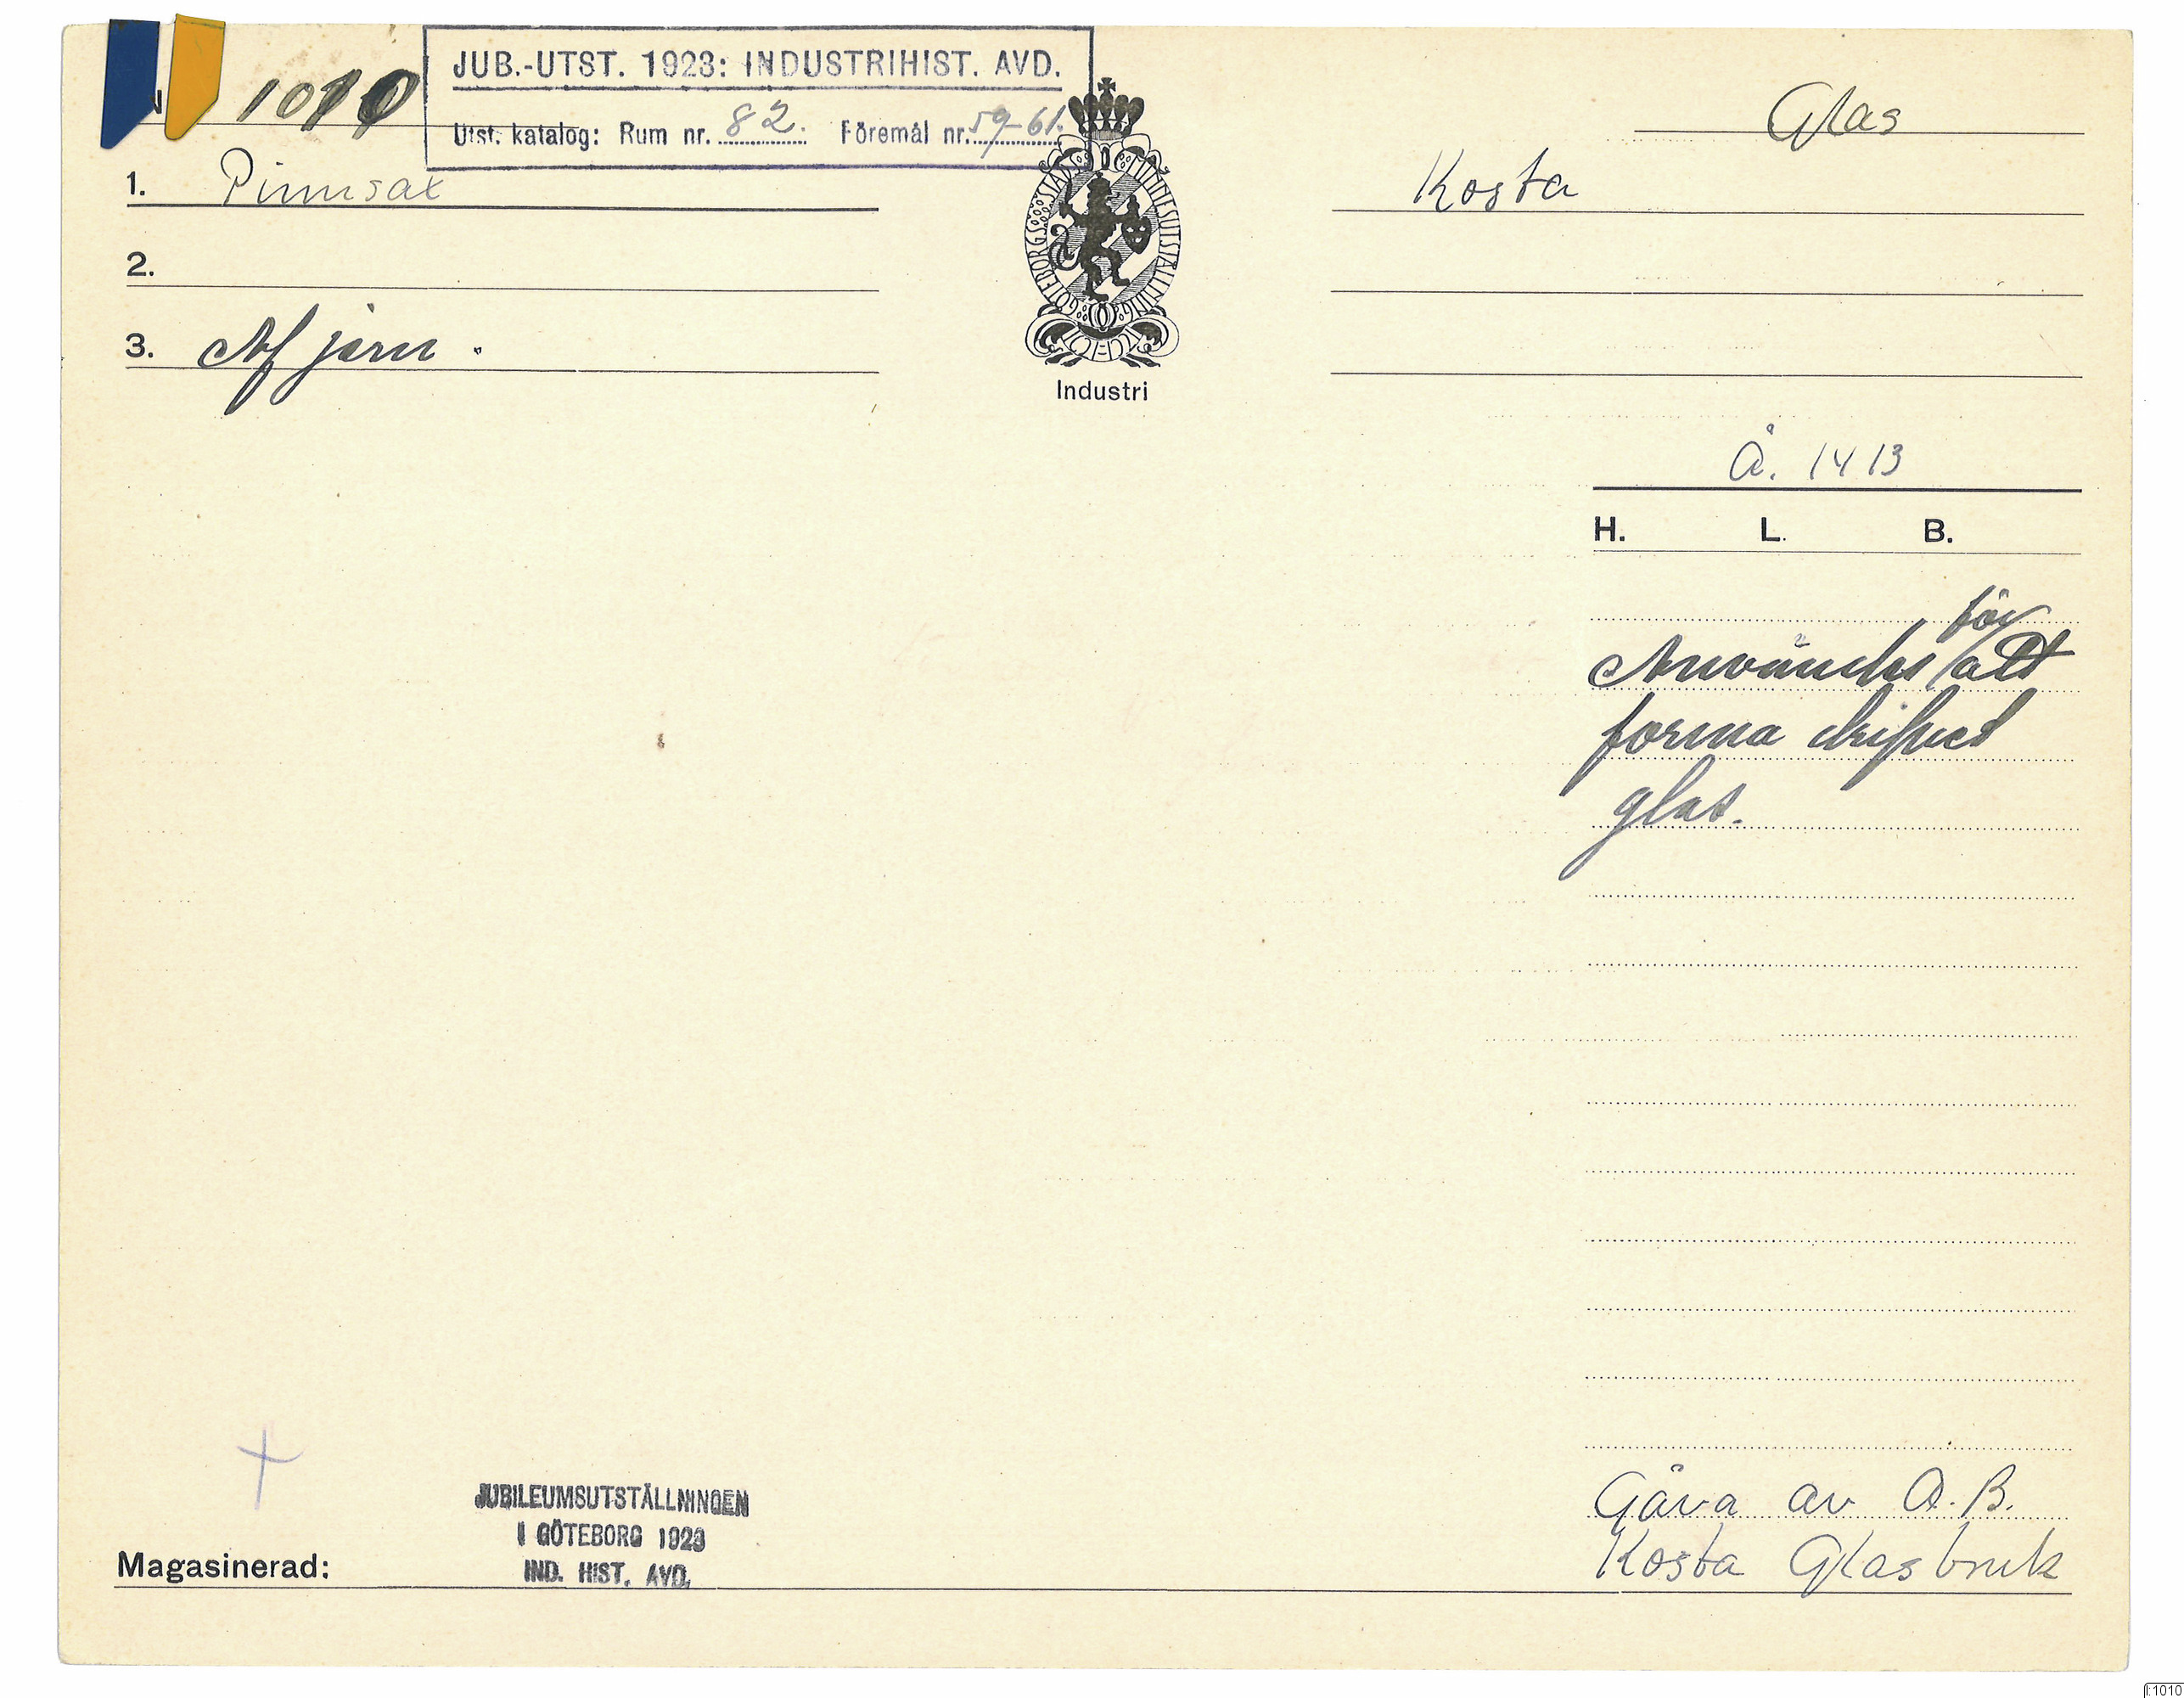 JUB.-UTST. 1923: INDUSTRIHIST. AVD.
N 1010
Utst. katalog: Rum nr. 82. Föremål nr. 59-61.
Glas
1. Pinnsax
Kosta
2.
3. Af järn.
GÖTEBORGS STADS MINNESUTSTÄLLNING
Industri
Å. 1413
H. L. B.
för
Användes att
forma
glas.
JUBILEUMSUTSTÄLLNINGEN
I GÖTEBORG 1923
IND. HIST. AVD.
Magasinerad:
Gåva av A.B.
Kosta Glasbruk
I:1010